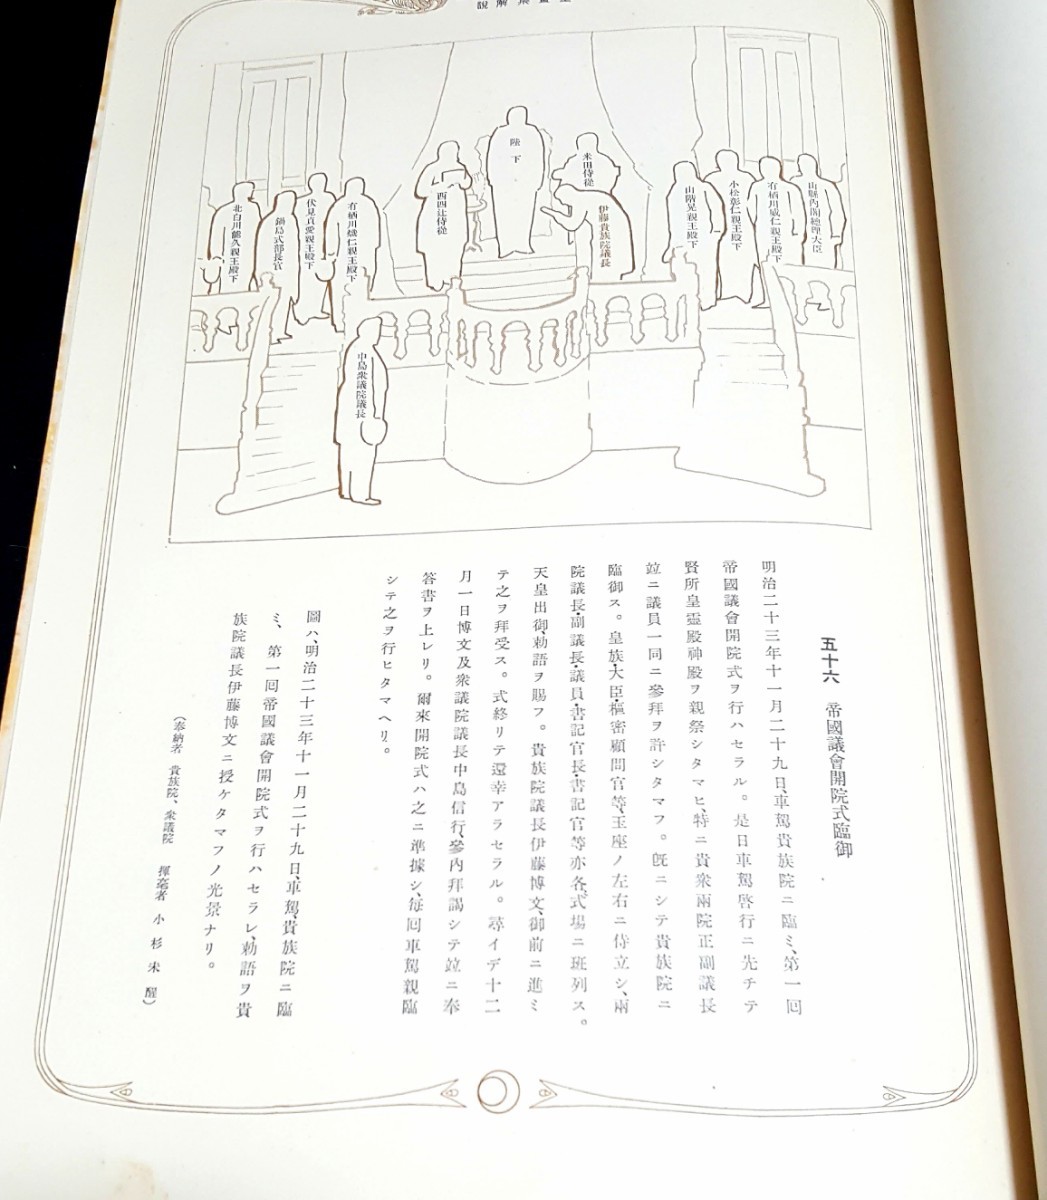 五十六　帝國議會開院式臨御
明治二十三年十一月二十九日、車駕貴族院ニ臨ミ、第一囘
帝國議會開院式ヲ行ハセラル。是日車駕啓行ニ先チテ
賢所皇靈殿神殿ヲ親祭シタマヒ、特ニ貴衆兩院正副議長
竝ニ議員一同ニ參拜ヲ許シタマフ。旣ニシテ貴族院ニ
臨御ス。皇族・大臣・樞密顧問官等、玉座ノ左右ニ侍立シ、兩
院議長・副議長・議員・書記官長・書記官等亦各〻式場ニ班列ス。
天皇出御、勅語ヲ賜フ。貴族院議長伊藤博文、御前ニ進ミ
テ之ヲ拜受ス。式終リテ還幸アラセラル。尋イデ十二
月一日博文及衆議院議長中島信行、參內拜謁シテ竝ニ奉
答書ヲ上レリ。爾來開院式ハ之ニ準據シ、每囘車駕親臨
シテ之ヲ行ヒタマヘリ。
圖ハ、明治二十三年十一月二十九日、車駕、貴族院ニ臨
ミ、第一囘帝國議會開院式ヲ行ハセラレ、勅語ヲ貴
族院議長伊藤博文ニ授ケタマフノ光景ナリ。
（奉納者　貴族院、衆議院　揮毫者　小杉未醒）
山縣內閣總理大臣
有栖川威仁親王殿下
小松彰仁親王殿下
山階晃親王殿下
伊藤貴族院議長
米田侍從
陛下
西四辻侍從
有栖川熾仁親王殿下
伏見貞愛親王殿下
鍋島式部長官
北白川能久親王殿下
中島衆議院議長